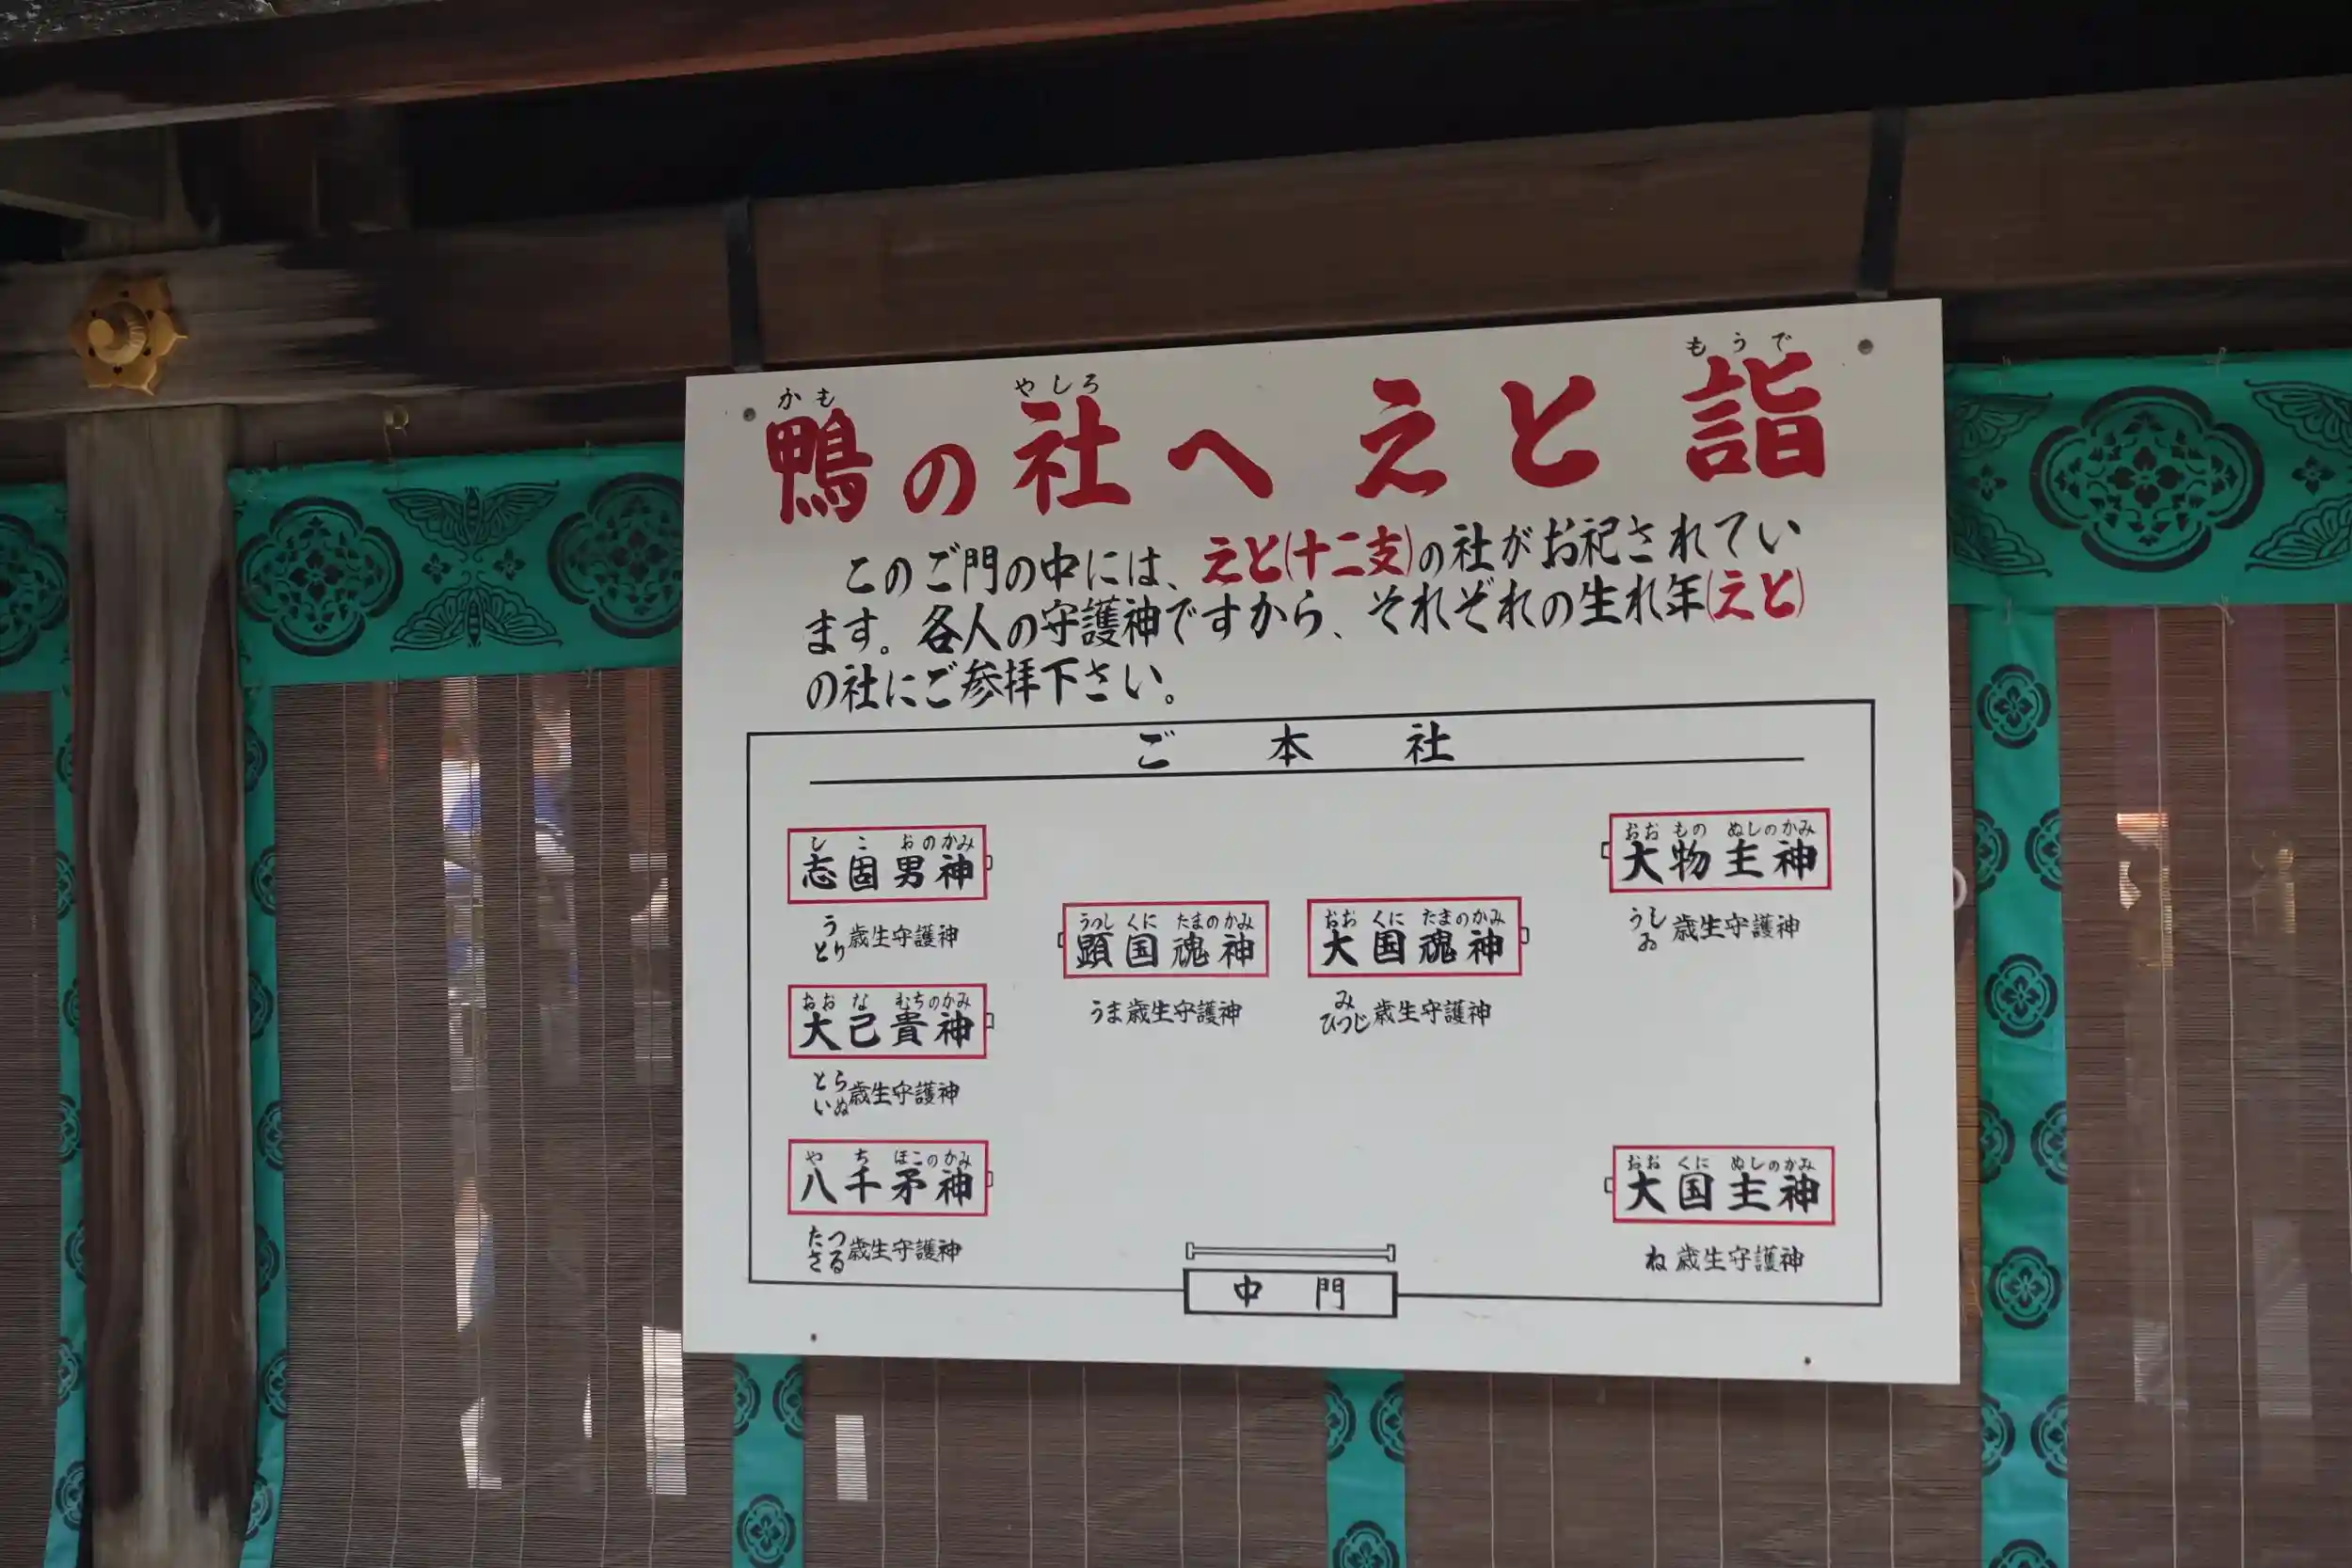 かも やしろ もうで
鴨の社へ えと詣
このご門の中には、えと(十二支)の社がお祀されてい
ます。各人の守護神ですから、それぞれの生れ年(えと)
の社にご参拝下さい。
ご本社
しこおのかみ
志固男神
うとり歳生守護神
おおなむちのかみ
大己貴神
とらいぬ歳生守護神
やちほこのかみ
八千矛神
たつさる歳生守護神
うつしくにたまのかみ
顕国魂神
うま歳生守護神
おおくにたまのかみ
大国魂神
みひつじ歳生守護神
おおものぬしのかみ
大物主神
うしゐ歳生守護神
おおくにぬしのかみ
大国主神
ね歳生守護神
中門